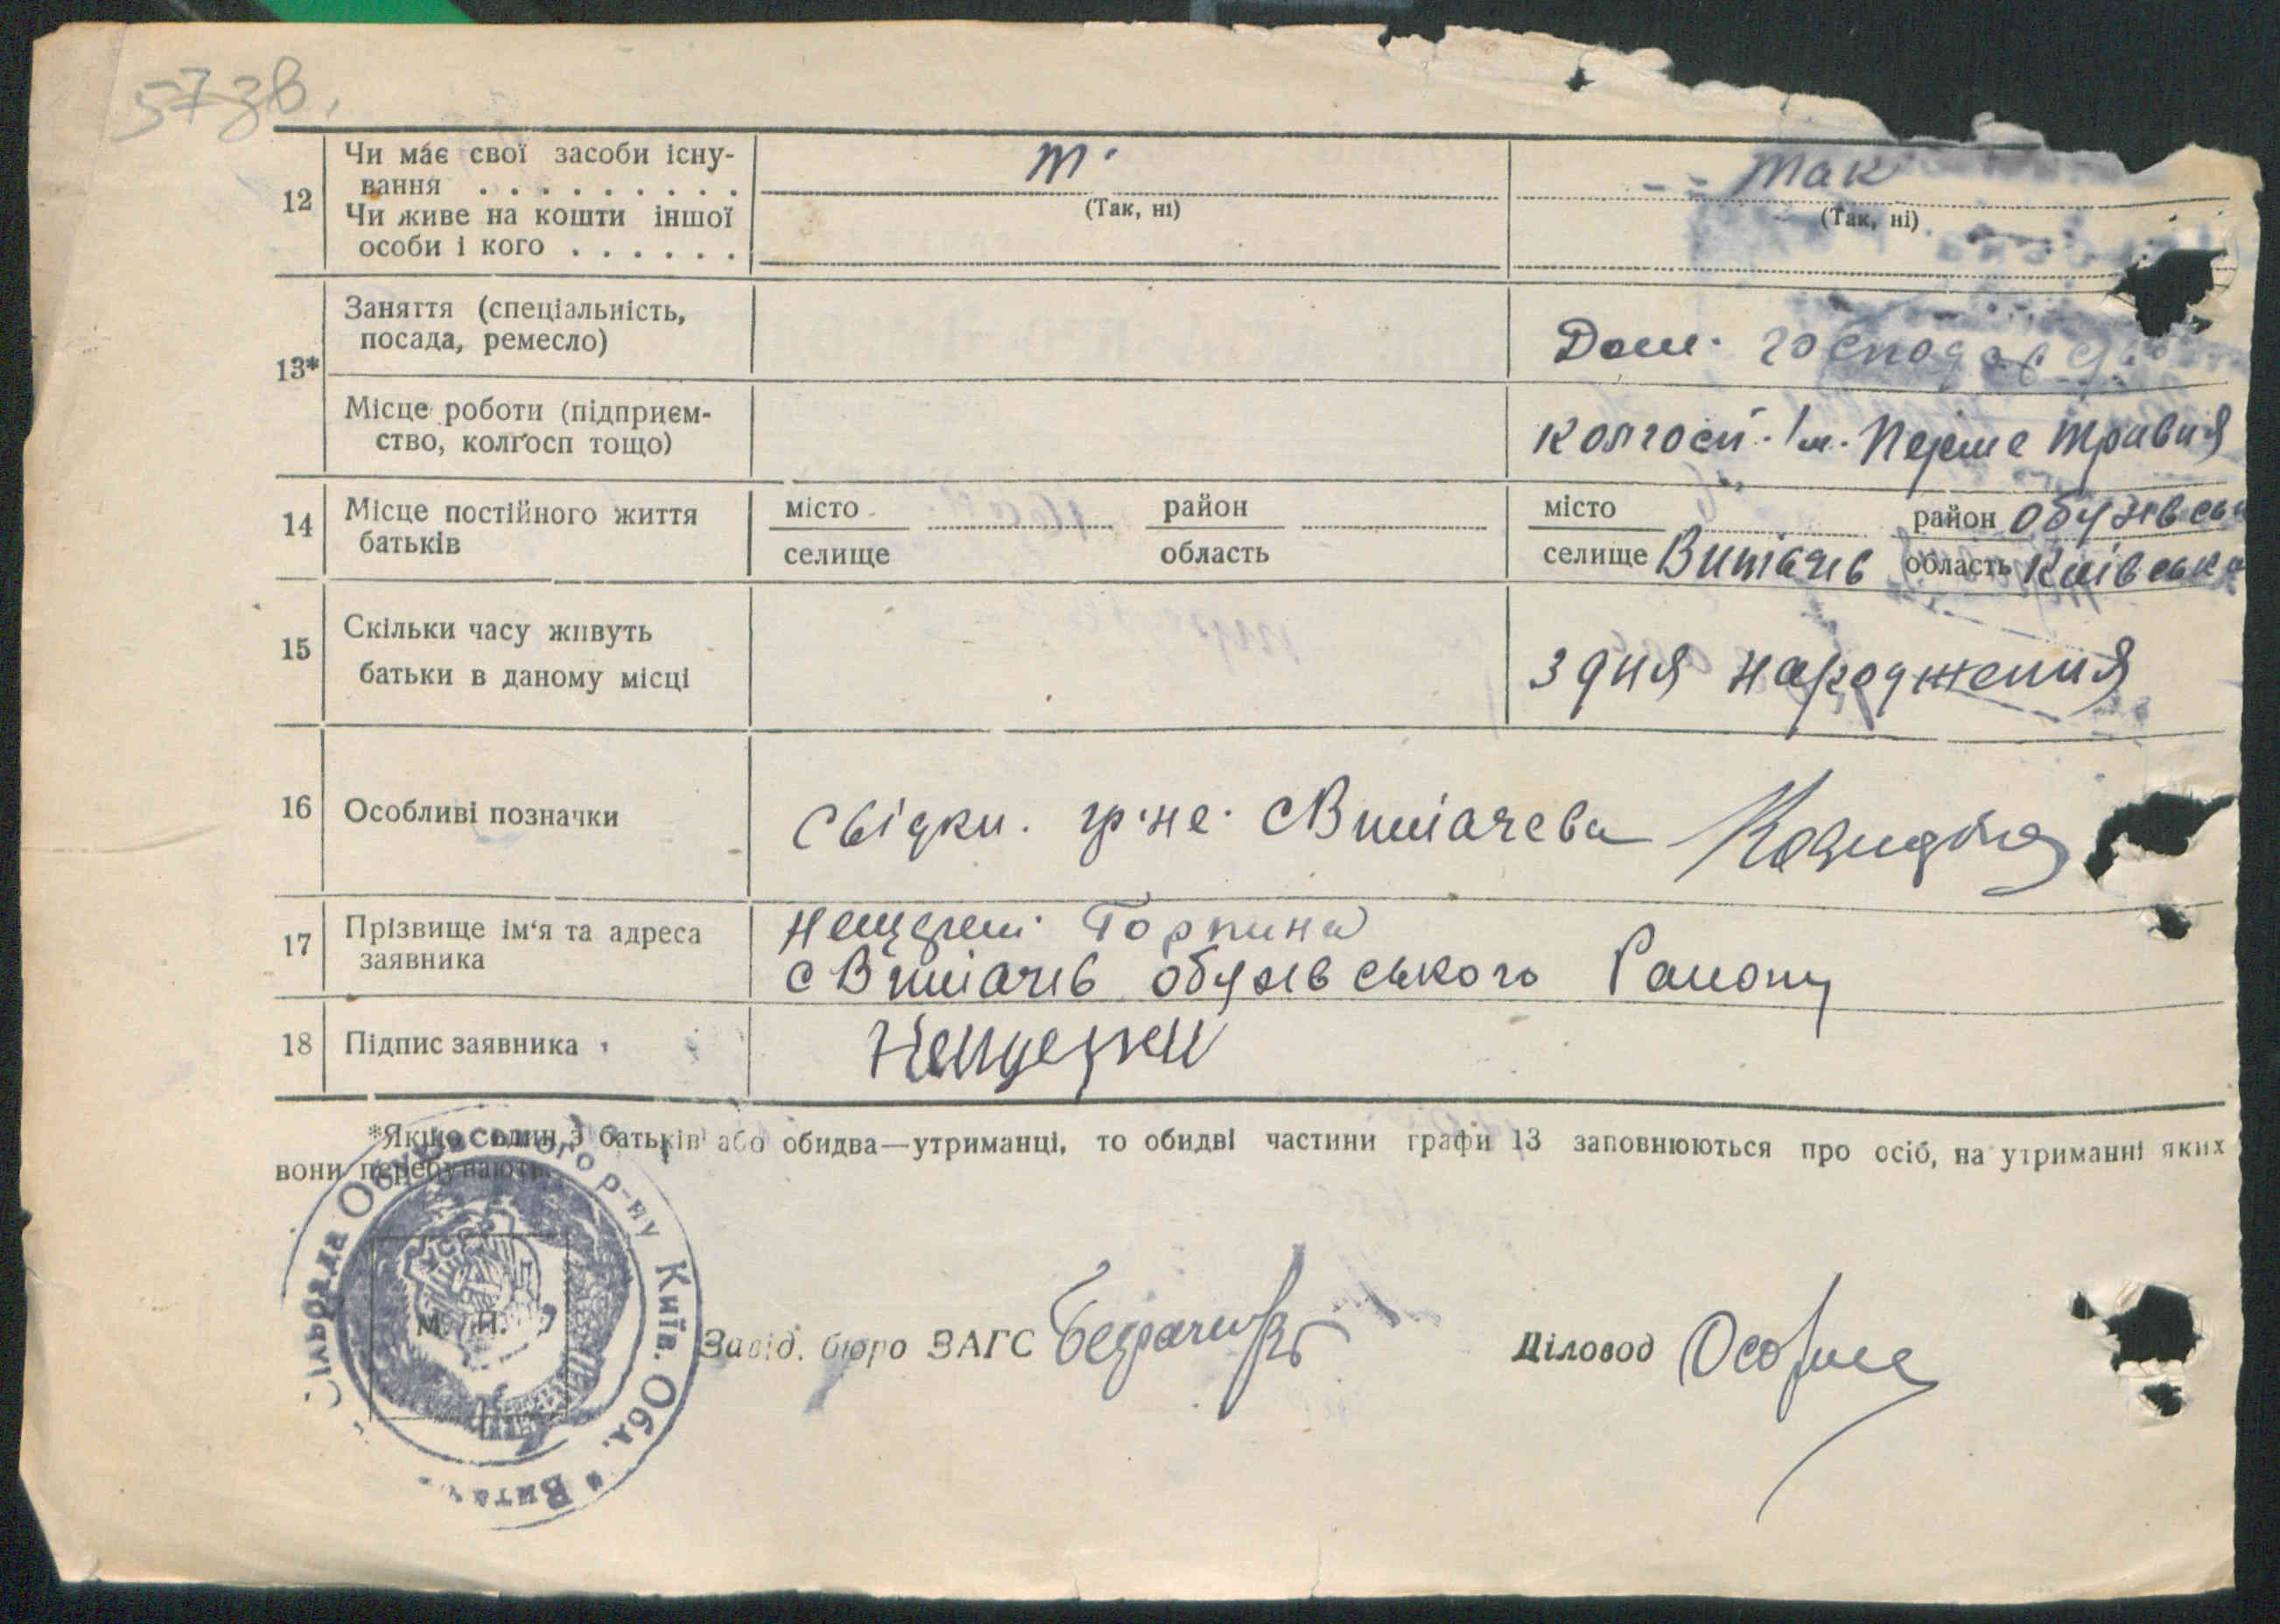 57 зв.
12
Чи має свої засоби існу-
вання . . . . . . . . .
Чи живе на кошти іншої
особи і кого . . . . . .
т.
(Так, ні)
Так
(Так, ні)
13*
Заняття (спеціальність,
посада, ремесло)
Дом. господар
Місце роботи (підприєм-
ство, колгосп тощо)
колгосп. Ім. Перше Травня
14
Місце постійного життя
батьків
місто
селище
район
область
місто
селище Витачів
район Обухівськ
область Київська
15
Скільки часу живуть
батьки в даному місці
З дня народження
16
Особливі позначки
Свідки. гр-не. с Витачева
17
Прізвище ім'я та адреса
заявника
Нещерет Горпина
с Витачів Обухівського Району
18
Підпис заявника
*Якщо один з батьків або обидва—утриманці, то обидві частини графи 13 заповнюються про осіб, на утриманні яких
вони перебувають.
Сільрада Обухівського р-ну Київ. Обл.
УСРР
М. П.
Завід. бюро ЗАГС
Діловод